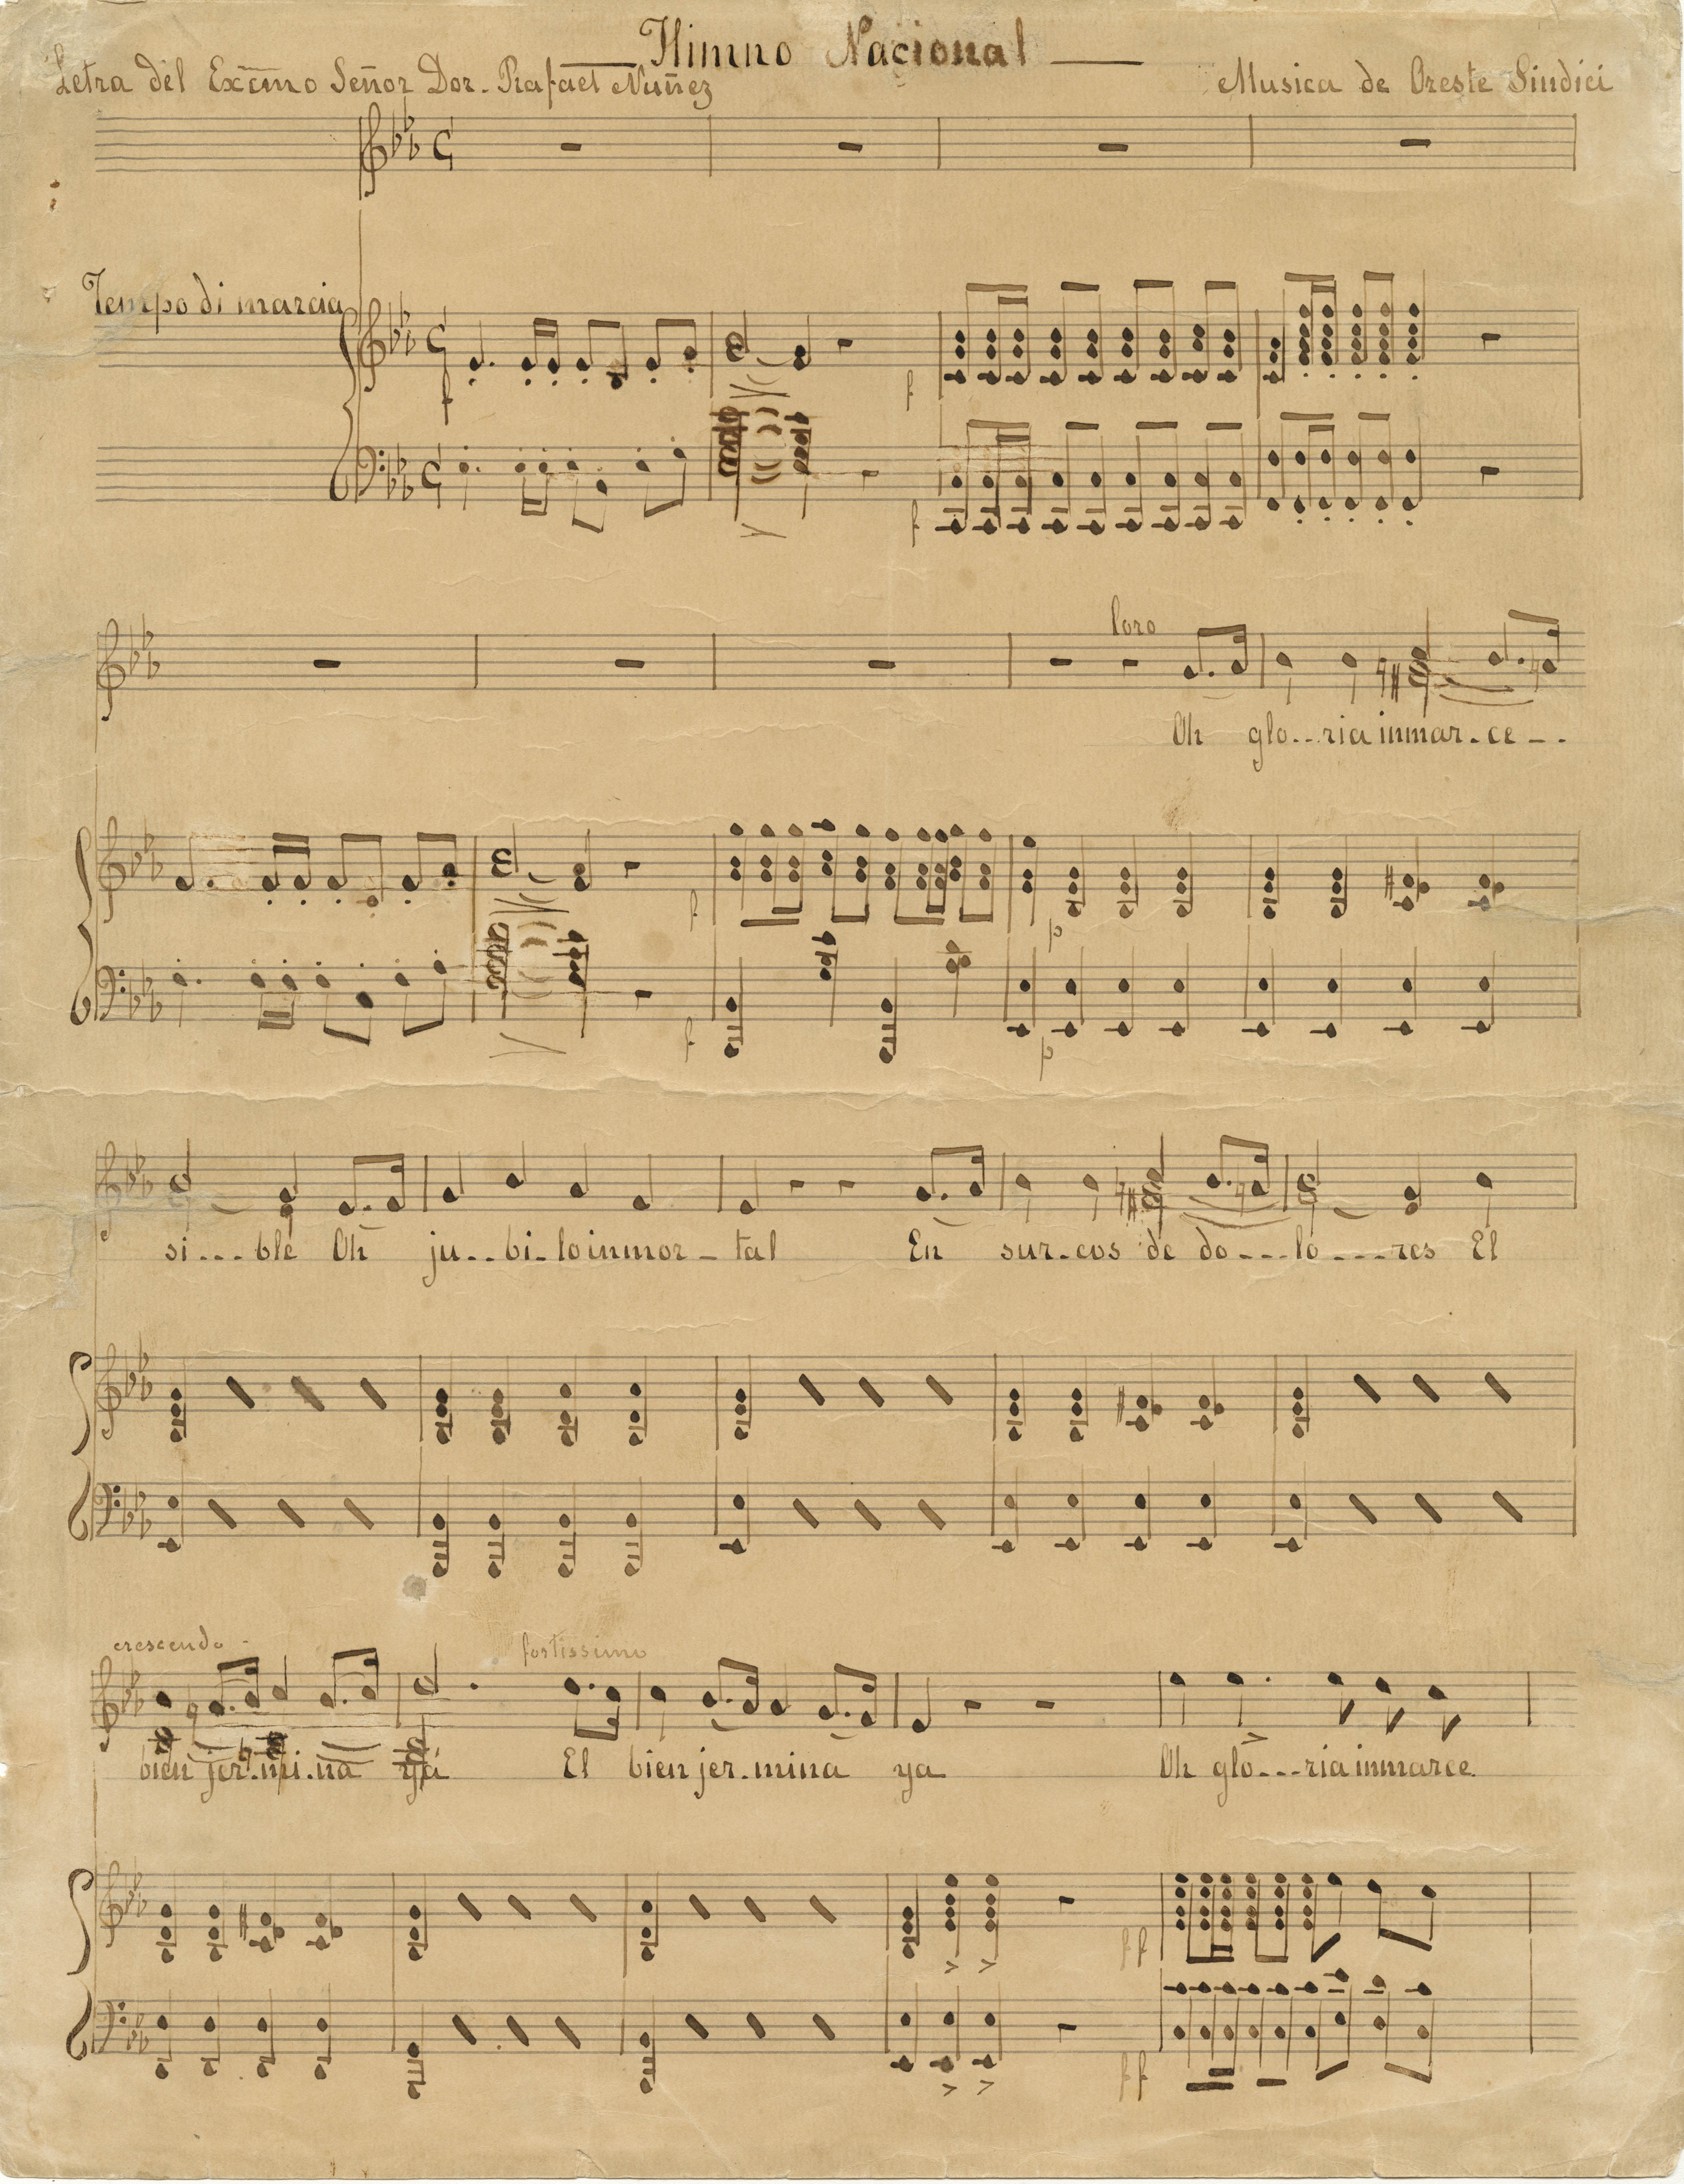 Himno Nacional
Letra del Excmo Señor Dor. Rafael Nuñez
Musica de Oreste Sindici
Tempo di marcia
f
f
f
Coro
Oh glo...ria inmar.ce_..
f
f
p
p
si...ble Oh ju..bi.lo inmor_tal En sur.cos de do...lo...res El
crescendo
fortissimo
bien jer.mi.na ya El bien jer.mina ya Oh glo...ria inmarce.
ff
ff